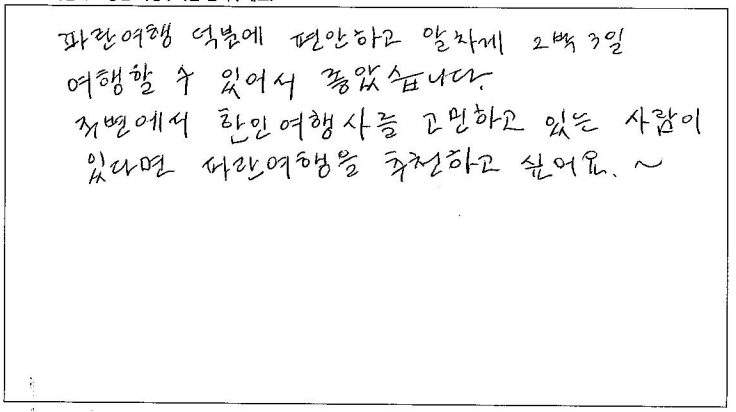 파란여행 덕분에 편안하고 알차게 2박 3일
여행할 수 있어서 좋았습니다.
주변에서 한인여행사를 고민하고 있는 사람이
있다면 파란여행을 추천하고 싶어요. ~